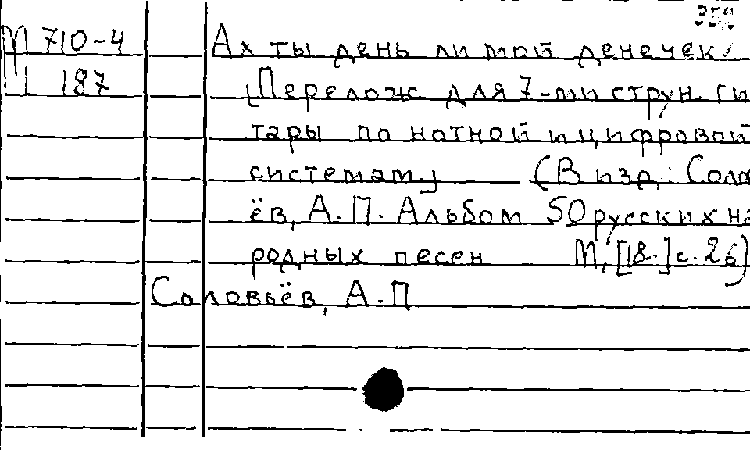 М 710-4
187
Ах ты день ли мой денечек.
[Перелож для 7-ми струн. ги
тары по нотной и цифровой
системам] (В изд.: Солов
ёв, А.П. Альбом 50 русских на
родных песен М., [18.] с. 26)
Соловьёв, А.П